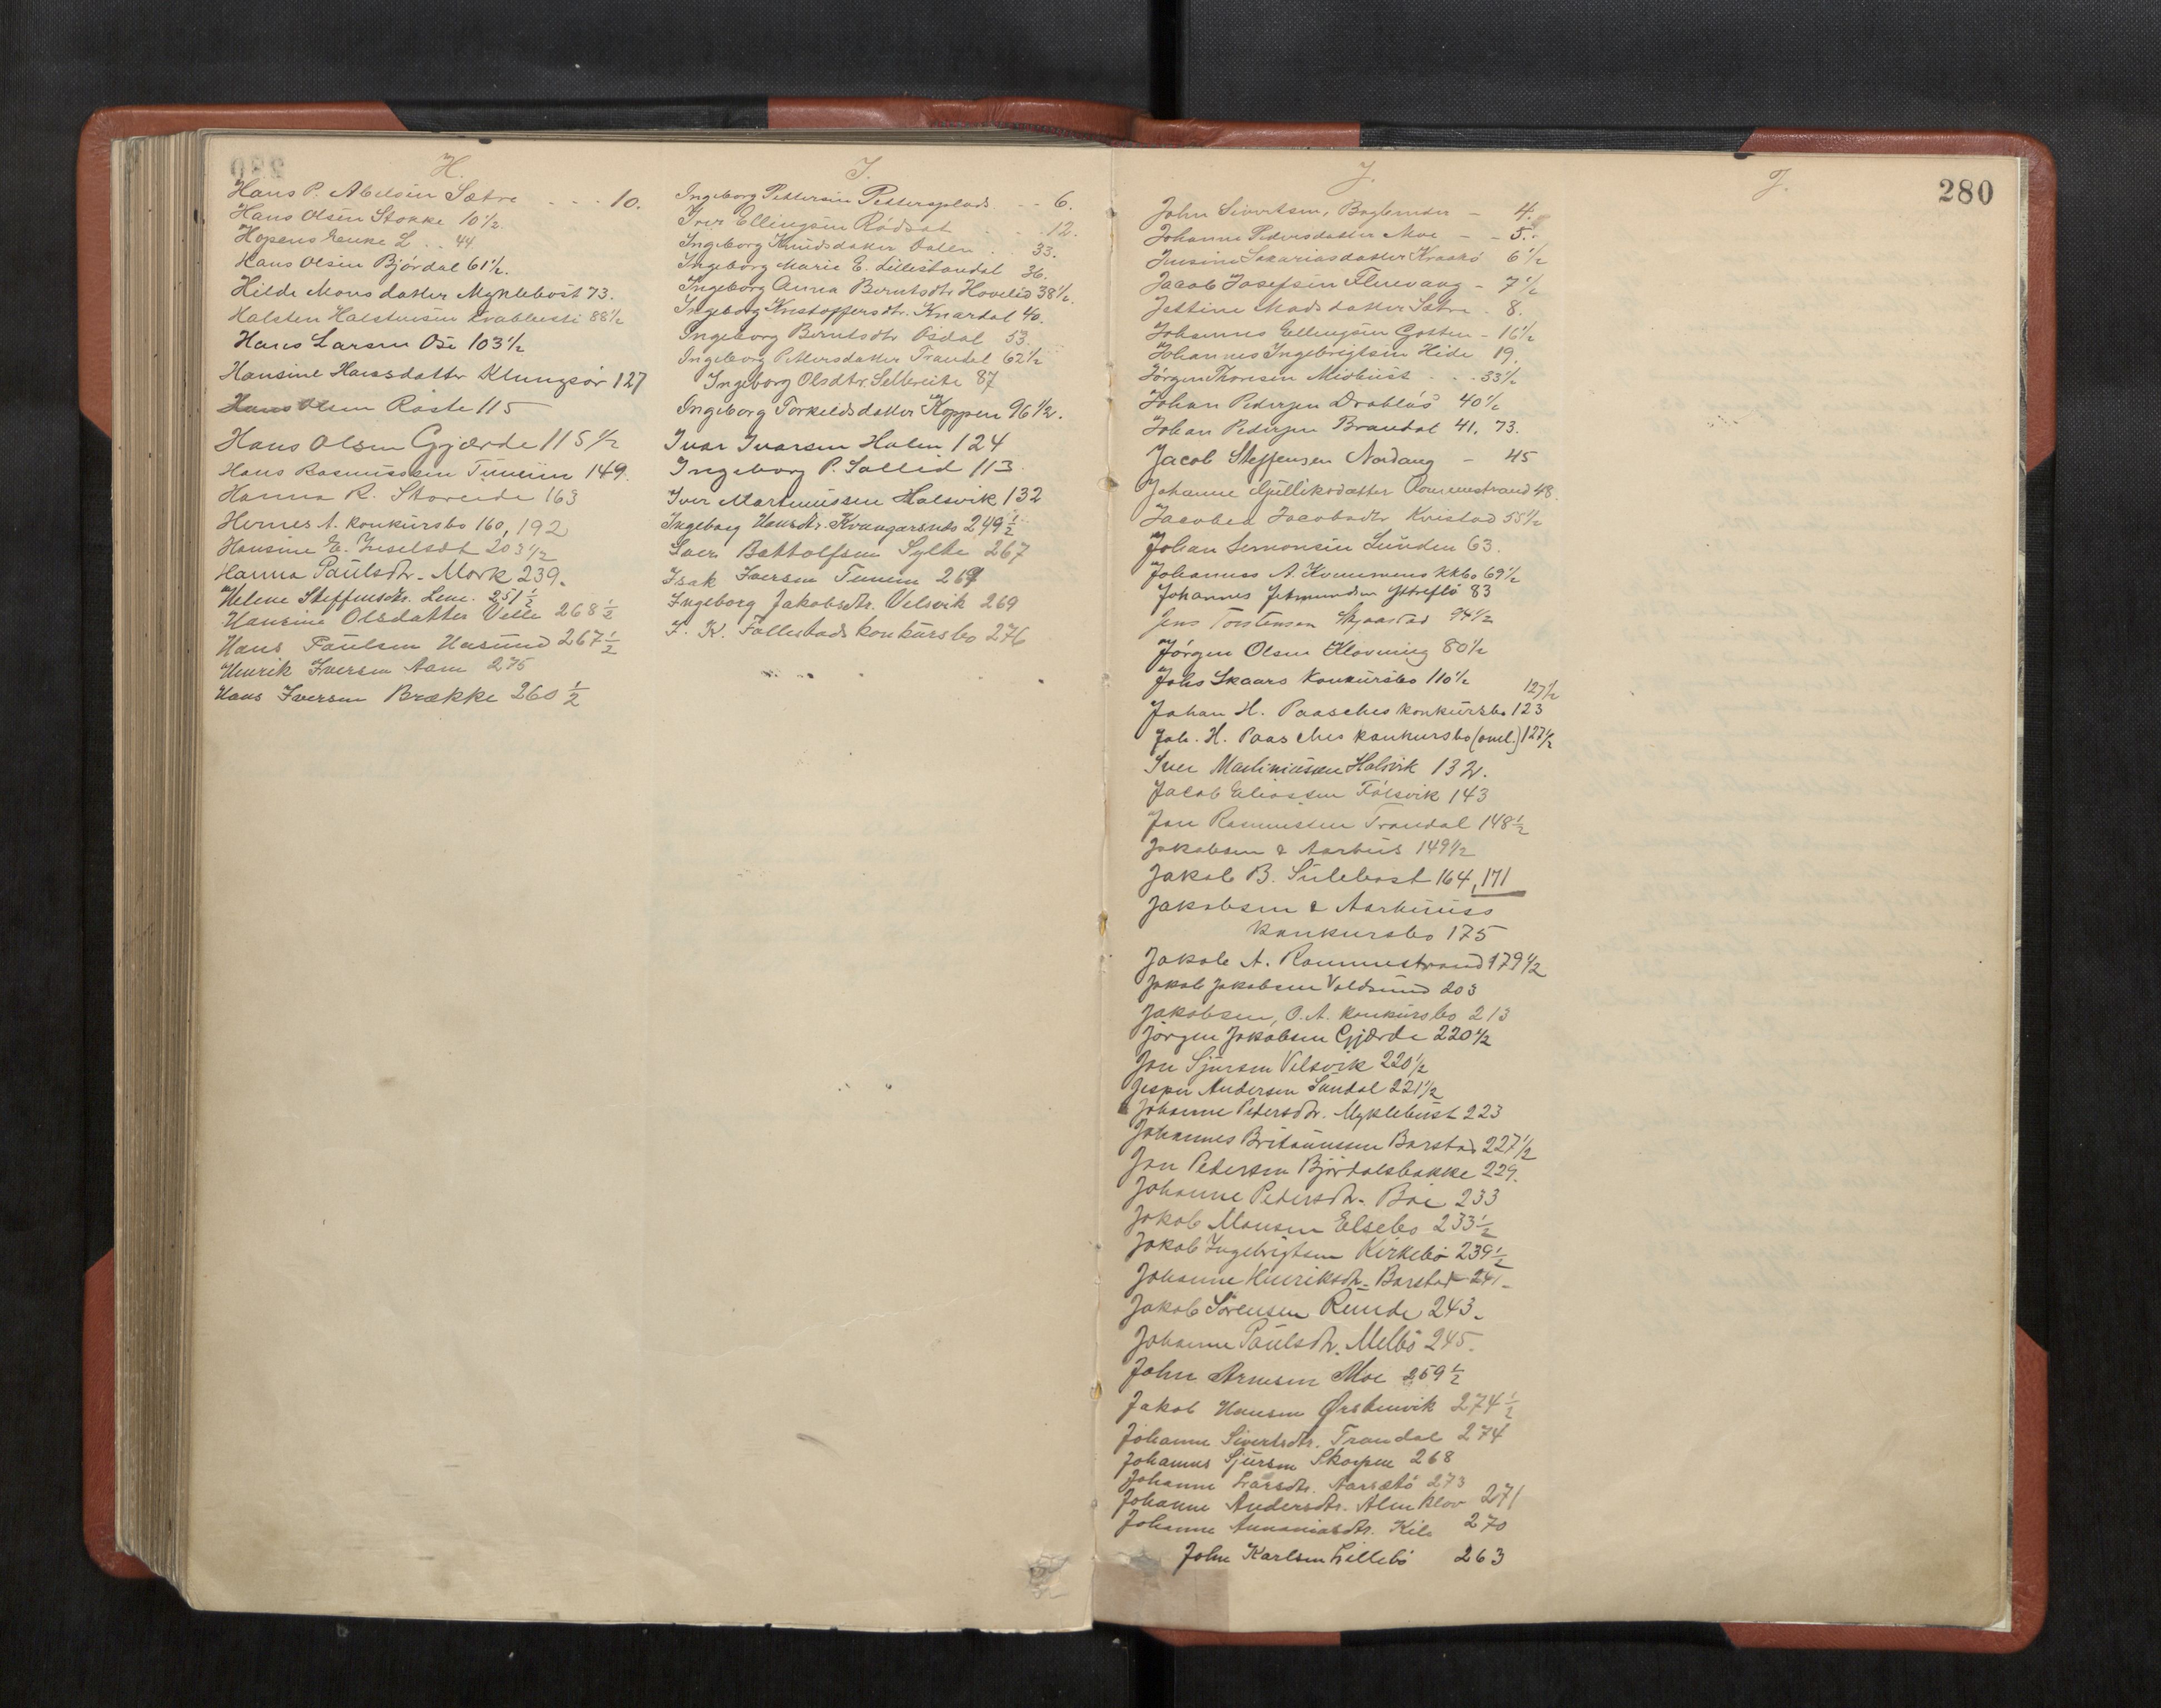 H.
Hans P. Abelsen Sætre - - - 10.
Hans Olsen Stokke 10 1/2.
Hopens Enke L . . 44.
Hans Olsen Bjórdal 61 1/2.
Hilde Monsdatter Myklebost 73.
Halsten Halstensen 88 1/2
Hans Larsen Ose 103 1/2
Hansine Hansdatter Klungsör 127
Hans Olsen Röste 115
Hans Olsen Gjærde 115 1/2
Hans Rasmussen 149.
Hanna R. Storeide 163
Hernes A. konkursbo 160, 192
Hansine E. 203 1/2
Hanna Paulsdtr. Mork 239.
Helene Steffensdtr. Lene. 251 1/2
Hansine Olsdatter Velle 268 1/2
Hans Paulsen Hasund 267 1/2
Henrik Iversen Aam 275
Hans Iversen Brække 260 1/2
I.
Ingeborg Pettersen Pettersplads - - 6.
Iver Ellingsen Rödsæt . . . 12.
Ingeborg Knudsdatter Dalen . . 33.
Ingeborg Marie E. Lillestandal 36.
Ingeborg Anna Berntsdtr Hovelid 38 1/2.
Ingeborg Kristoffersdtr. Knardal 40.
Ingeborg Berntsdtr Osdal 53.
Ingeborg Pettersdatter Trandal 62 1/2
Ingeborg Olsdtr. Selbreite 87
Ingeborg Torkildsdatter Koppen 96 1/2.
Ivar Ivarsen Holen 124
Ingeborg P. Sollid 113
Iver Martinussen Halsvik 132
Ingeborg Hansdtr. Kvangarsnes 249 1/2
Iver Bottolfsen Sylte 267
Isak Iversen 269
Ingeborg Jakobsdtr. Velsvik 269
I. K. Follestads konkursbo 276
J.
J.
280
John Sivertsen, - 4.
Johanne Pedersdatter Moe - - 5.
Jensine Sakariasdatter Kraakö 6 1/2
Jacob Josefsen Flusvaag - 7 1/2
Jettine Madsdatter Sætre . 8.
Johannes Ellingsen - 16 1/2
Johannes Ingebrigtsen Hide 19.
Jörgen Thoresen Midbust . . . 33 1/2
Johan Pedersen Drablös 40 1/2
Johan Pedersen Brandal 41. 73.
Jacob Steffensen Nordang - 45
Johanne Gulliksdatter Rommestrand 48.
Jacobea Jacobsdtr Kvistad 55 1/2
Johan Semonsen Lunden 63.
Johannes A. Kvammens kkbo 69 1/2
Johannes Jetmundsen Ytreflö 83
Jens Torstensen Skjaastad 94 1/2
Jörgen Olsen Klovning 80 1/2
Johs Skaars Konkursbo 110 1/2
127 1/2
Johan H. Paasches konkursbo 123
Joh. H. Paasches konkursbo (omt.) 127 1/2
Iver Martinussen Halsvik 132.
Jacob Eliassen Fólsvik 143
Jon Rasmussen Trandal 148 1/2
Jakobsen & Aarhus 149 1/2
Jakob B. Sulebost 164, 171
Jakobsen & Aarhuus
konkursbo 175
Jakob A. Rommestrand 179 1/2
Jakob Jakobsen Voldsund 203
Jakobsen, O. A. konkursbo 213
Jörgen Jakobsen Gjærde 220 1/2
Jon Sjursen Velsvik 220 1/2
Jesper Andersen Sundal 221 1/2
Johanne Pedersdtr. Myklebust 223
Johannes Britanussen Barstad 227 1/2
Jon Pedersen Björdalsbakke 229.
Johanne Pedersdtr. Böe 233
Jakob Monsen Elsebo 233 1/2
Jakob Ingebrigtsen Kirkebö 239 1/2
Johanne Henriksdtr. Barstad 241.
Jakob Sörensen Runde 243.
Johanne Paulsdtr. Melbö 245.
John Arnesen Moe 259 1/2
Jakob Hansen Ørstenvik 274 1/2
Johanne Sivertsdtr. Trandal 274
Johannes Sjursen Skorpen 268
Johanne Larsdtr. Aarsetö 273
Johanne Andersdtr. Almklov 271
Johanne Annaniasdtr. Kile 270
John Karlsen Lillebö 263